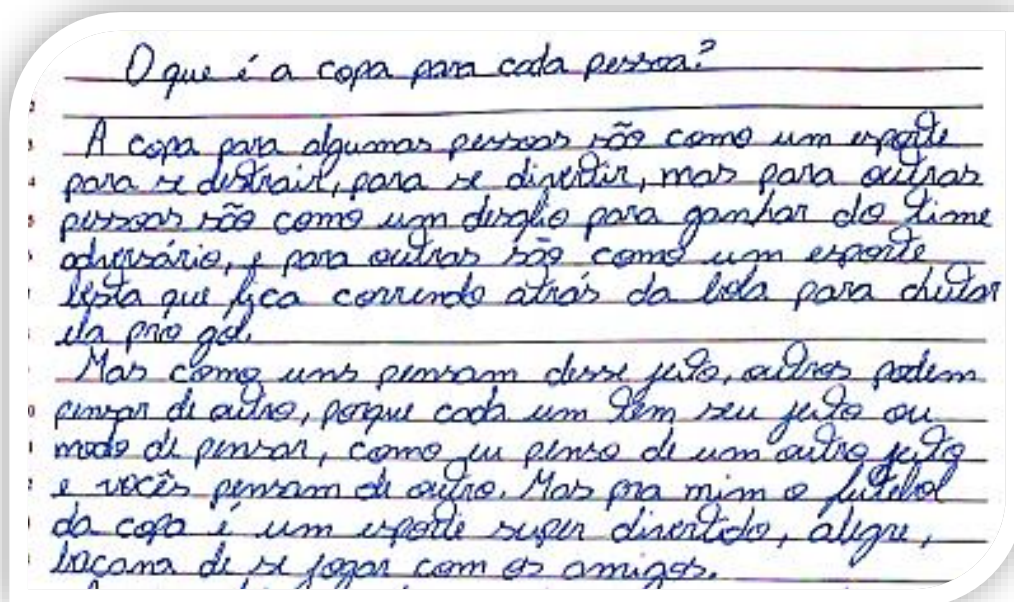 O que é a copa para cada pessoa?
A copa para algumas pessoas são como um esporte
para se distrair, para se divertir, mas para outras
pessoas são como um desafio para ganhar do time
adversário, e para outras são como um esporte
besta que fica correndo atrás da bola para chutar
ela pro gol.
Mas como uns pensam desse jeito, outros podem
pensar de outro, porque cada um tem seu jeito ou
modo de pensar, como eu penso de um outro jeito
e vocês pensam de outro. Mas pra mim o futebol
da copa é um esporte super divertido, alegre,
bacana de se jogar com os amigos.